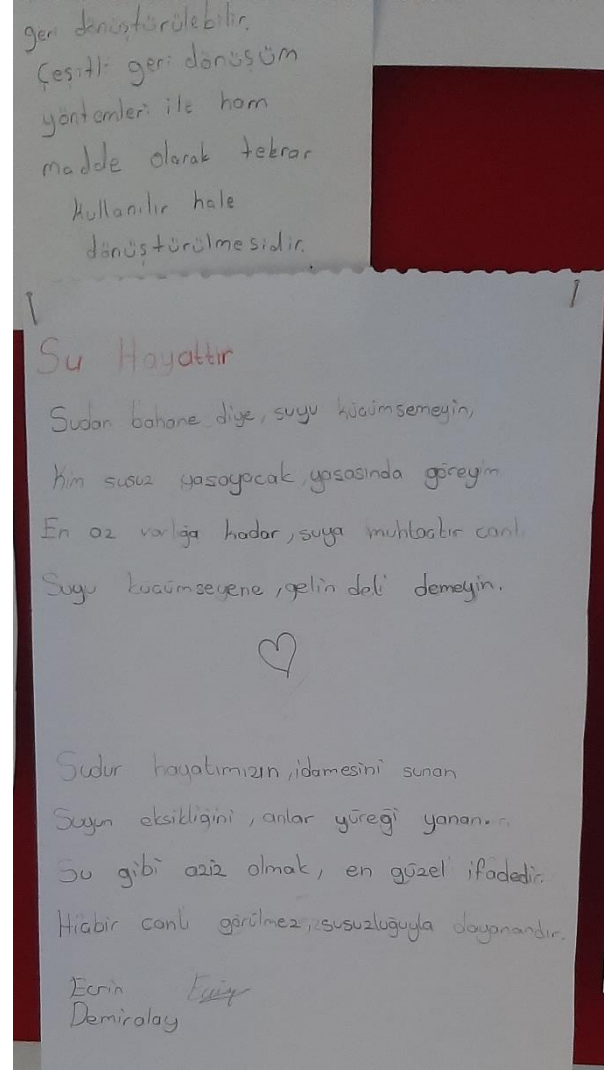 geri dönüştürülebilir.
Çeşitli geri dönüşüm
yöntemleri ile ham
madde olarak tekrar
kullanılır hale
dönüştürülmesidir.
Su Hayattır
Sudan bahane diye, suyu küçümsemeyin,
Kim susuz yaşayacak, yaşasında göreyim
En az varlığa kadar, suya muhtaçtır canlı
Suyu küçümseyene, gelin deli demeyin.
Sudur hayatımızın, idamesini sunan
Suyun eksikliğini, anlar yüreği yanan...
Su gibi aziz olmak, en güzel ifadedir.
Hiçbir canlı görülmez, susuzluğuyla dayanandır.
Ecrin
Demiralay